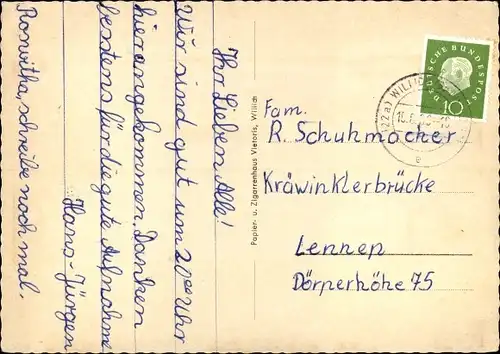 Ihr Lieben Alle!
Wir sind gut um 20⁰⁰ Uhr
hier angekommen. Danken
bestens für die gute Aufnahme
Hans-Jürgen
Roswitha, schreibe noch mal.
Papier- u. Zigarrenhaus Vietoris, Willich
DEUTSCHE BUNDESPOST
10
(22a) WILLICH
e
Fam.
R. Schuhmacher
Kräwinklerbrücke
Lennep
Dörperhöhe 75